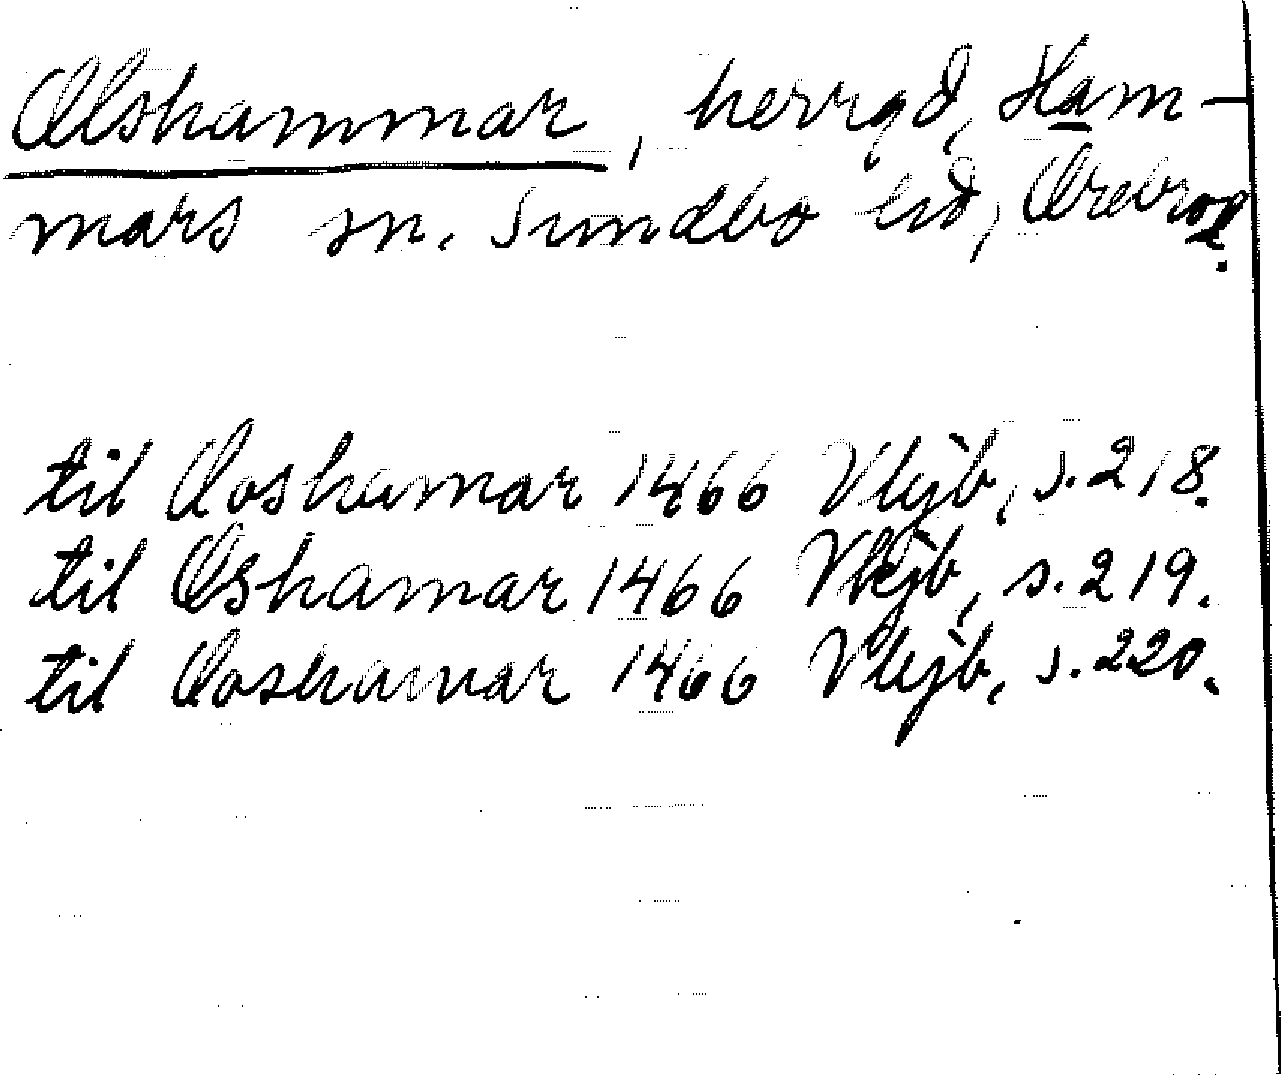 Olshammar, herrgd, Ham-
mars sn. Sundbo hd, Örebro l.
til Ooshamar 1466 Vkjb, s. 218.
til Oshamar 1466 Vkjb, s. 219.
til Ooshamar 1466 Vkjb, s. 220.